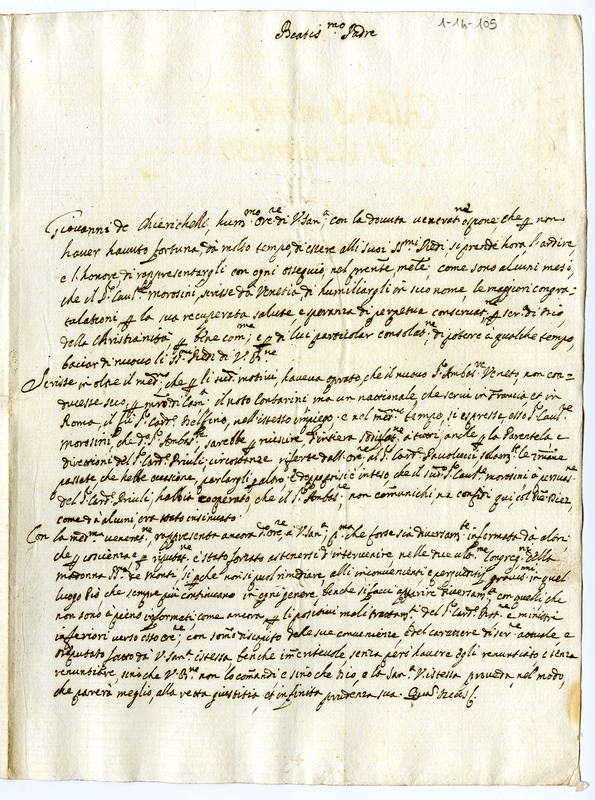 1-14-105
Beatis.mo Padre
Giovanni de Chierichelli, hum.mo Ore di V. San.a con la dovuta venerat.ne espone, che p non
haver havuto fortuna da molto tempo, di essere alli suoi SS.mi Piedi, si prende hora l'ardire
e l'honore di rappresentargli con ogni ossequio, nel p̃nte mese, come sono alcuni mesi,
che il S.r Morosini, scrisse da Venetia di humiliargli in suo nome, le maggiori congra-
tulationi p la sua recuperata salute, e speranza di perpetua conservat.ne p ser. di Dio,
della Christianità p bene com.ne e p di lui particolar consolat.ne di potere à qualche tempo,
baciar di nuovo li SS.mi Piedi di V. B.ne
Scrisse in oltre il med.mo che p li sud.i motivi, haveva oprato, che il nuovo S.r Ambas.re Veneto, non con-
ducesse seco, p il noto Contarini ma un nationale, che servì in Francia et in
Roma, il S.r Card. Delfino, nell'istesso impiego, e nel med.mo tempo, si espresse esso S.r
Morosini, che d.o S.r Ambas.re sarebbe p riuscire anche p la Parentela e
direttioni del S.r Card. Priuli, circostanze riferte dall'Ore al S.r Card. Paolucci
passate che hebbe occasione, parlargli p altro, e dappoi si è inteso, che il sud.o S.r Morosini
del S.r Card. Priuli, habbia cooperato, che il S.r Ambas.re non comunichi, ne confidi qui, col
come da alcuni, era stato insinuato.
Con la med.ma venerat.ne rappresenta ancora l'Ore a V. San.a che forse sia diversam.te informata da altri,
che p coscienza e p è stato forzato astenersi d'intervenire nelle due ult.me Congreg.ni della
Madonna SS.ma de Monti, si che non si può rimediare alli inconvenienti e pregiuditij gravis.mi in quel
luogo Pio che sempre più continuano in ogni genere, benche si facci apparire diversam.te con quelli che
non sono à pieno informati come ancora p li positivi mali trattam.ti del S.r Card. e ministri
inferiori verso esso Ore, con somo discapito delle sue convenienze e del carattere di ser.re attuale e
Deputato fatto da V. San.a istessa, benche im̃eritevole, senza però havere Egli renuntiato e senza
renuntiare, sino che V. B.ne non lo comandi e sino che Dio, e la San.a V. istessa proveda, nel modo,
che parerà meglio, alla retta giustitia, et infinita prudenza sua. Quas Deus